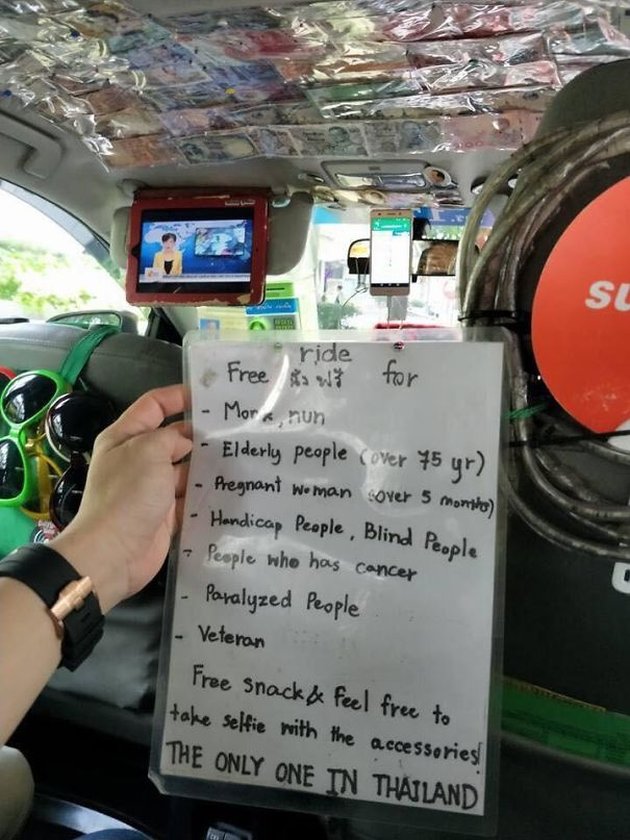 ride
Free นั่งฟรี for
- Monk, nun
- Elderly people (over 75 yr)
- Pregnant woman (over 5 months)
- Handicap People, Blind People
- People who has cancer
- Paralyzed People
- Veteran
Free snack & Feel free to
take selfie with the accessories!
THE ONLY ONE IN THAILAND
SU